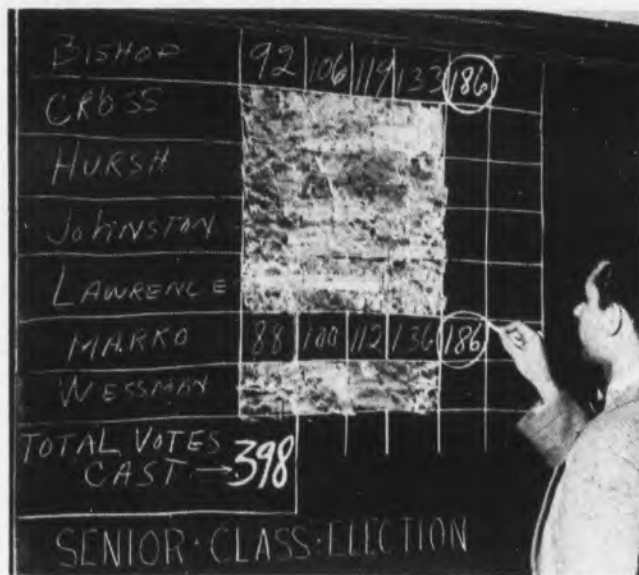 BISHOP 92 106 119 133 186
CROSS
HURSH
JOHNSTON
LAWRENCE
MARKO 88 100 112 136 186
WESSMAN
TOTAL VOTES
CAST → 398
SENIOR·CLASS·ELECTION